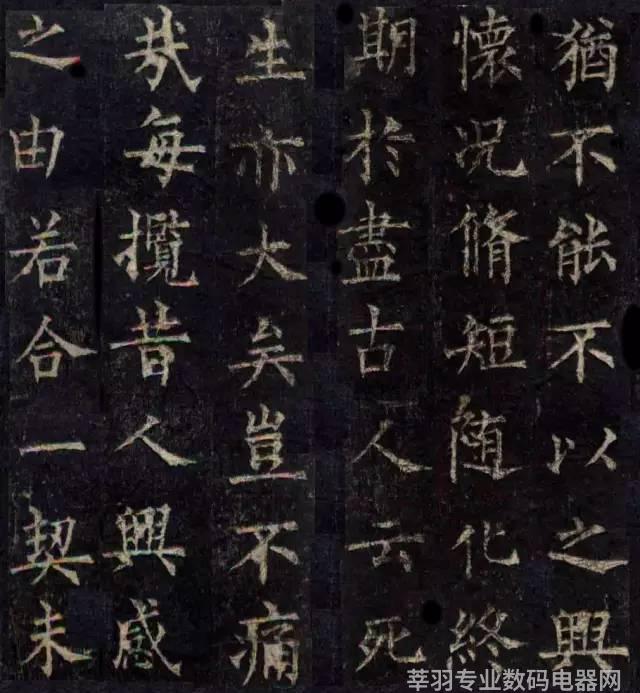 猶不能不以之興
懷况脩短随化終
期於盡古人云死
生亦大矣豈不痛
哉每攬昔人興感
之由若合一契未
莘羽专业数码电器网